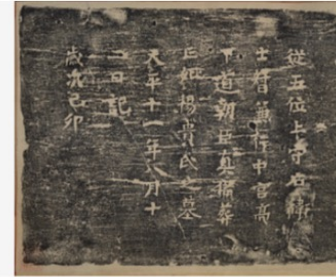 從五位上守右衛
士督兼行中宮亮
下道朝臣真備葬
亡妣楊貴氏之墓
天平十一年八月十
二日記
歳次己卯